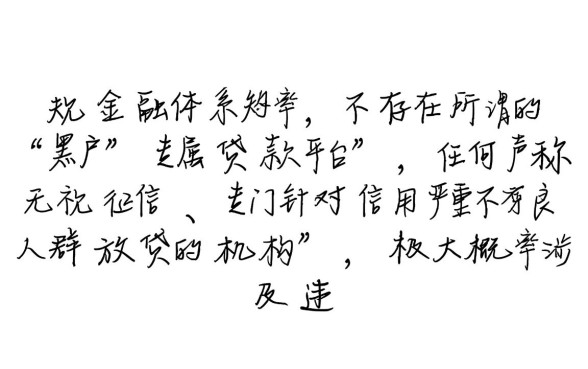 规金融体系效率，不存在所谓的
“黑户”专属贷款平台”，任何声称
无视征信、专门针对信用严重不良
人群放贷的机构”，极大概率涉
及违